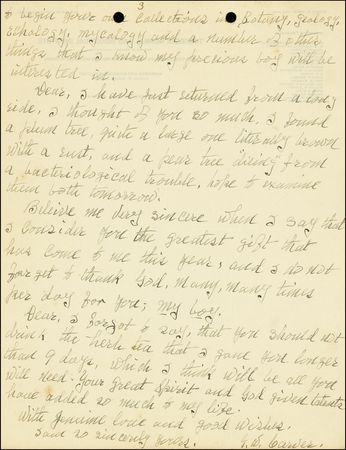 3
to begin your own collections in Botany, Geology,
Mycology and a number of other
things that I know my precious boy will be
interested in.
Dear, I have just returned from a long
ride, I thought of you so much, I found
a plum tree, quite a large one literally brown
with a rust, and a pear tree dieing from
a bacteriological trouble, hope to examine
them both tomorrow.
Beleive me very sincere when I say that
I consider you the greatest gift that
has come to me this year, and I do not
forget to thank God, many, many times
per day for you; my boy.
Dear, I forgot to say, that you should not
drink the herb tea that I gave you longer
than 9 days, which I think will be all you
will need. Your great Spirit and God given talents
have added so much to my life.
With genuine love and good wishes.
I am so sincerely yours, G. W. Carver.